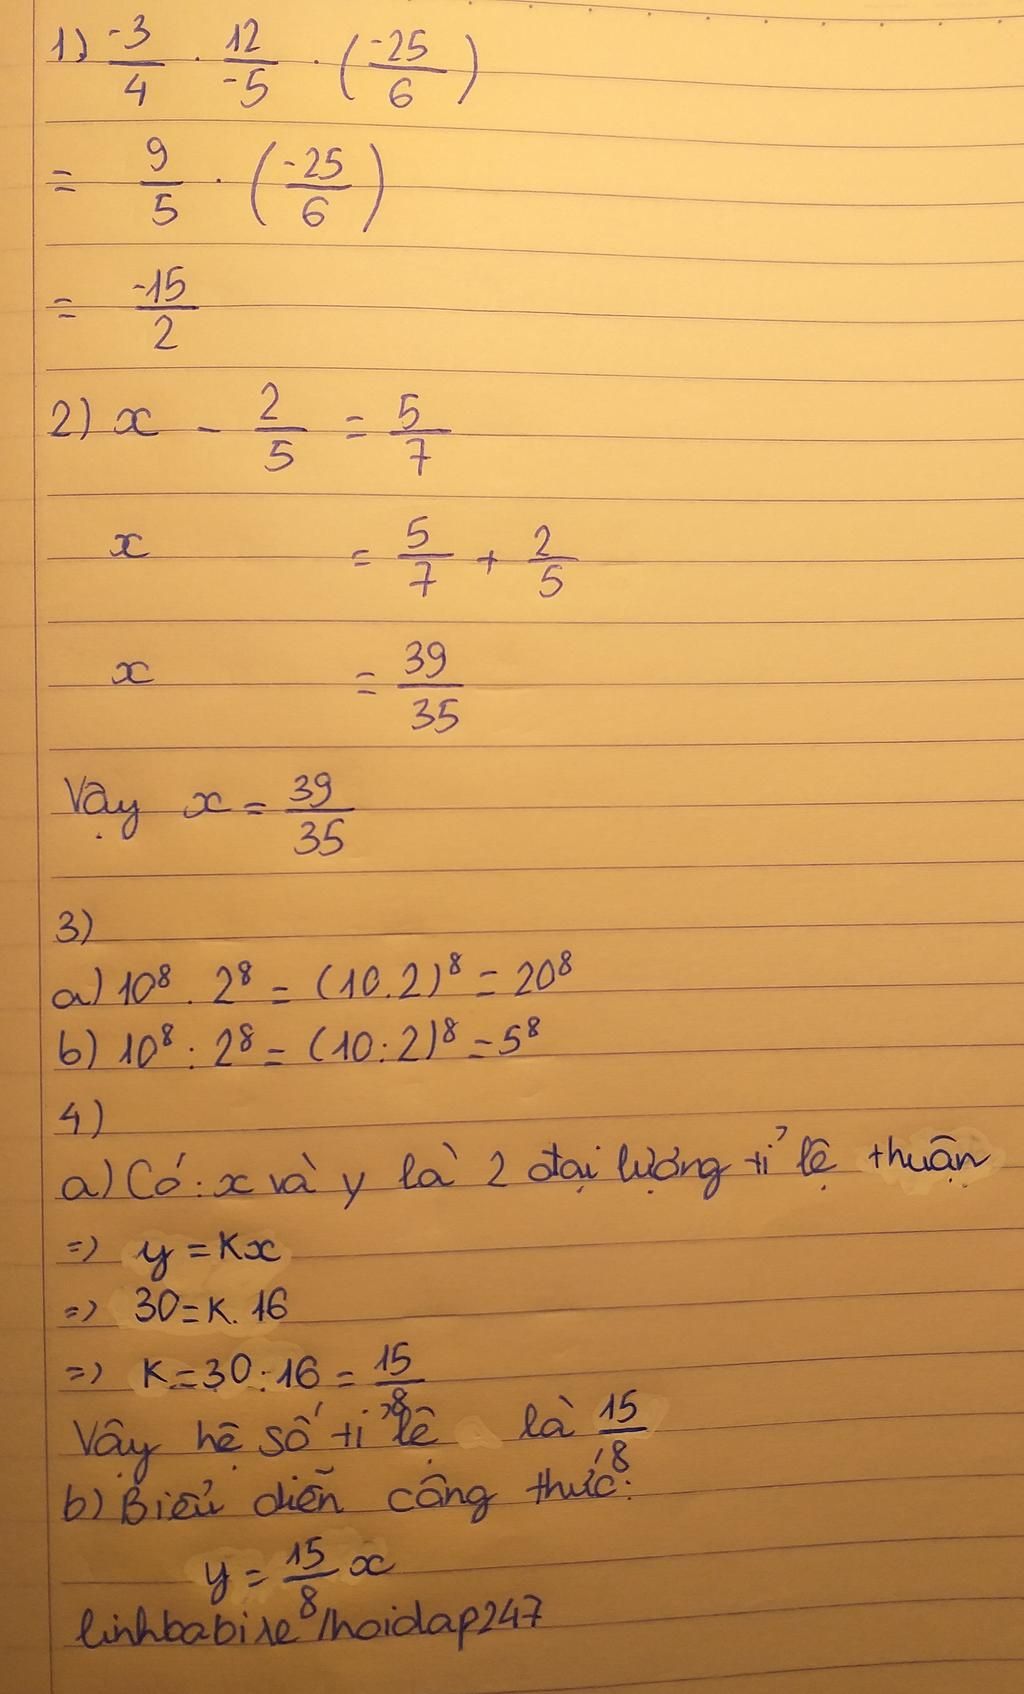 1) -3/4 . 12/-5 . (-25/6)
= 9/5 . (-25/6)
= -15/2
2) x - 2/5 = 5/7
x = 5/7 + 2/5
x = 39/35
Vậy x = 39/35
3)
a) 10⁸ . 2⁸ = (10.2)⁸ = 20⁸
b) 10⁸ : 2⁸ = (10:2)⁸ = 5⁸
4)
a) Có: x và y là 2 đại lượng tỉ lệ thuận
=> y = Kx
=> 30 = K. 16
=> K = 30:16 = 15/8
Vậy hệ số tỉ lệ là 15/8
b) Biểu diễn công thức:
y = 15/8 x
linhbabixe/hoidap247